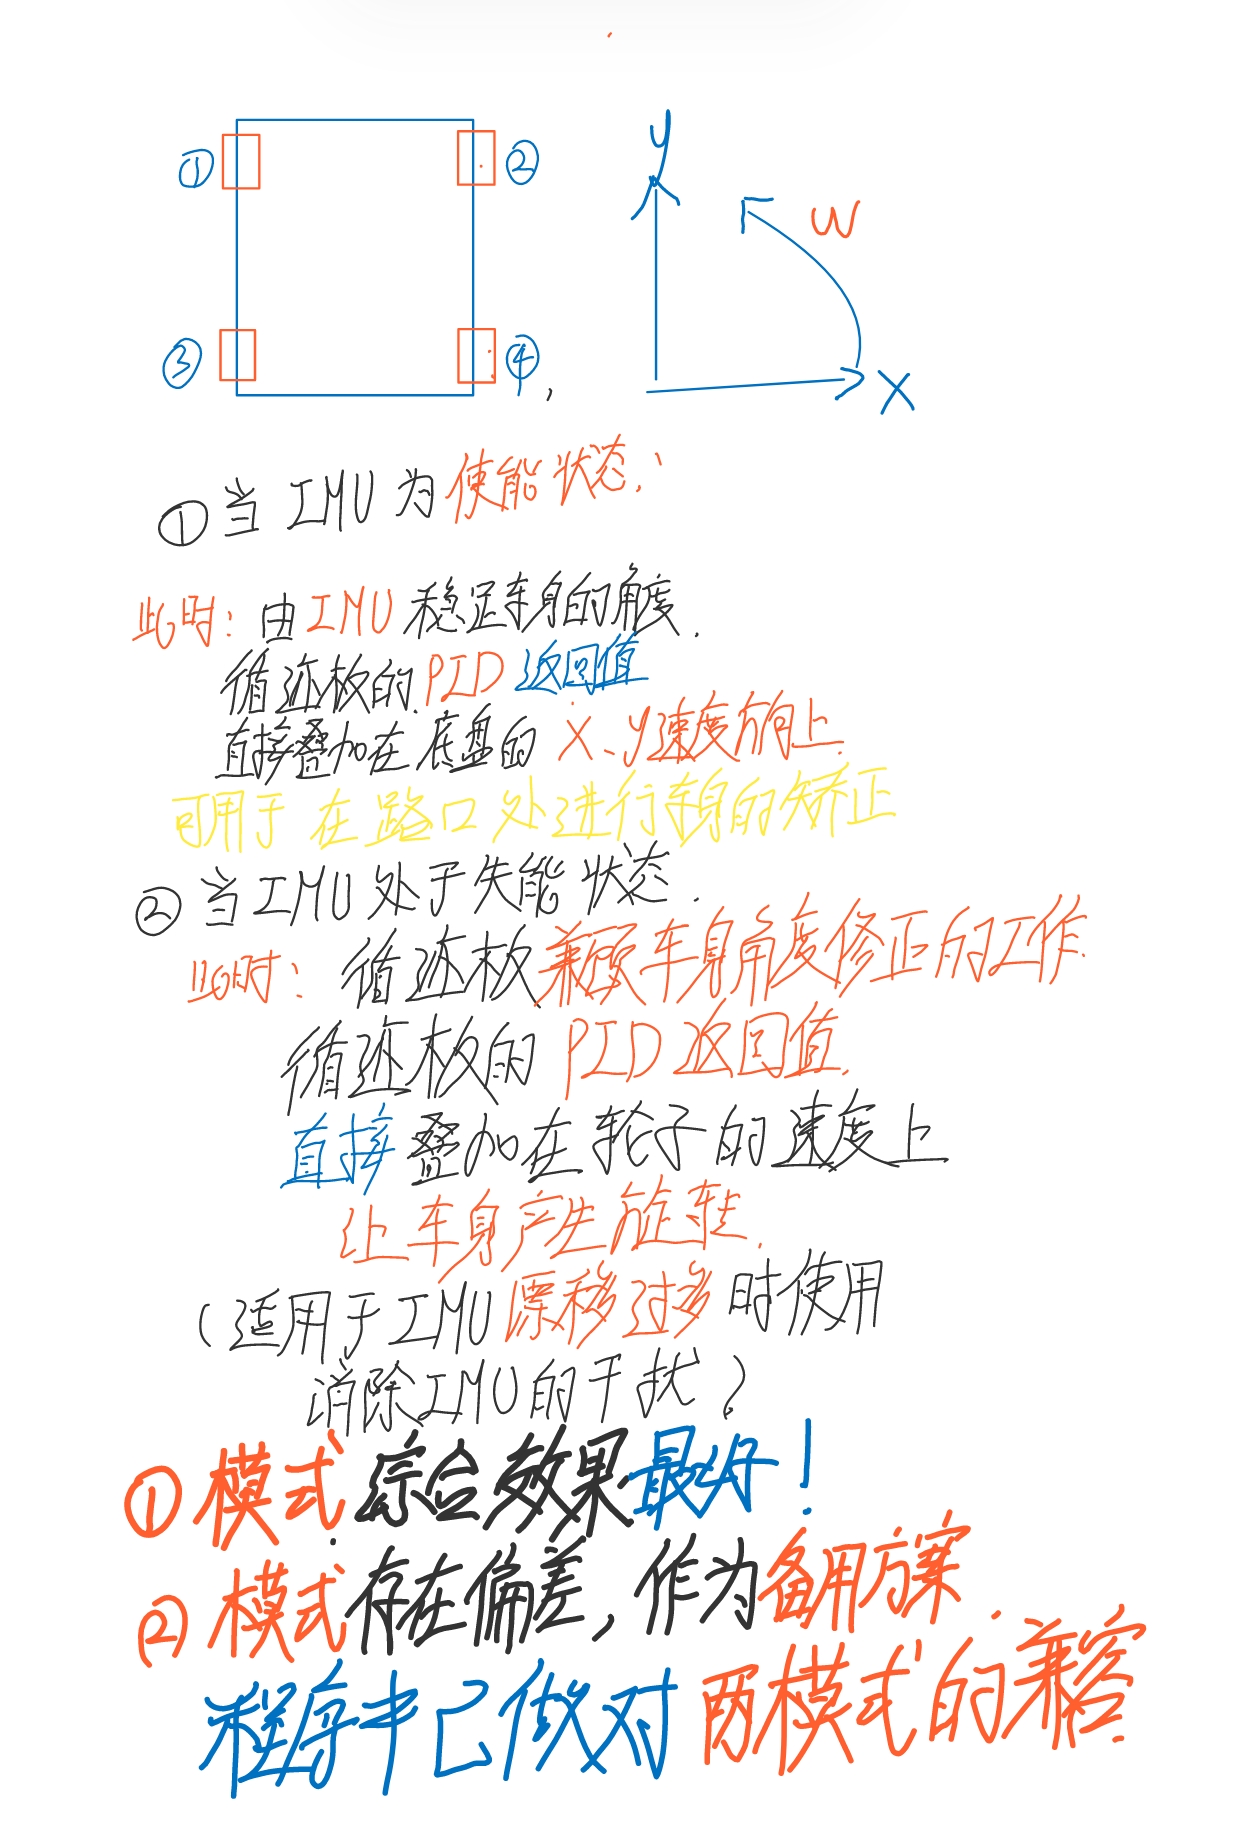 ① ② y w
③ ④, x
①当IMU为使能状态:
此时:由IMU稳定车身的角度.
循迹板的PID返回值
直接叠加在底盘的X、y速度方向上.
可用于在路口处进行车身的矫正
②当IMU处于失能状态.
此时:循迹板兼顾车身角度修正的工作.
循迹板的PID返回值.
直接叠加在轮子的速度上
让车身产生旋转.
(适用于IMU漂移过多时使用
消除IMU的干扰)
①模式综合效果最好!
②模式存在偏差,作为备用方案.
程序中已做对两模式的兼容.